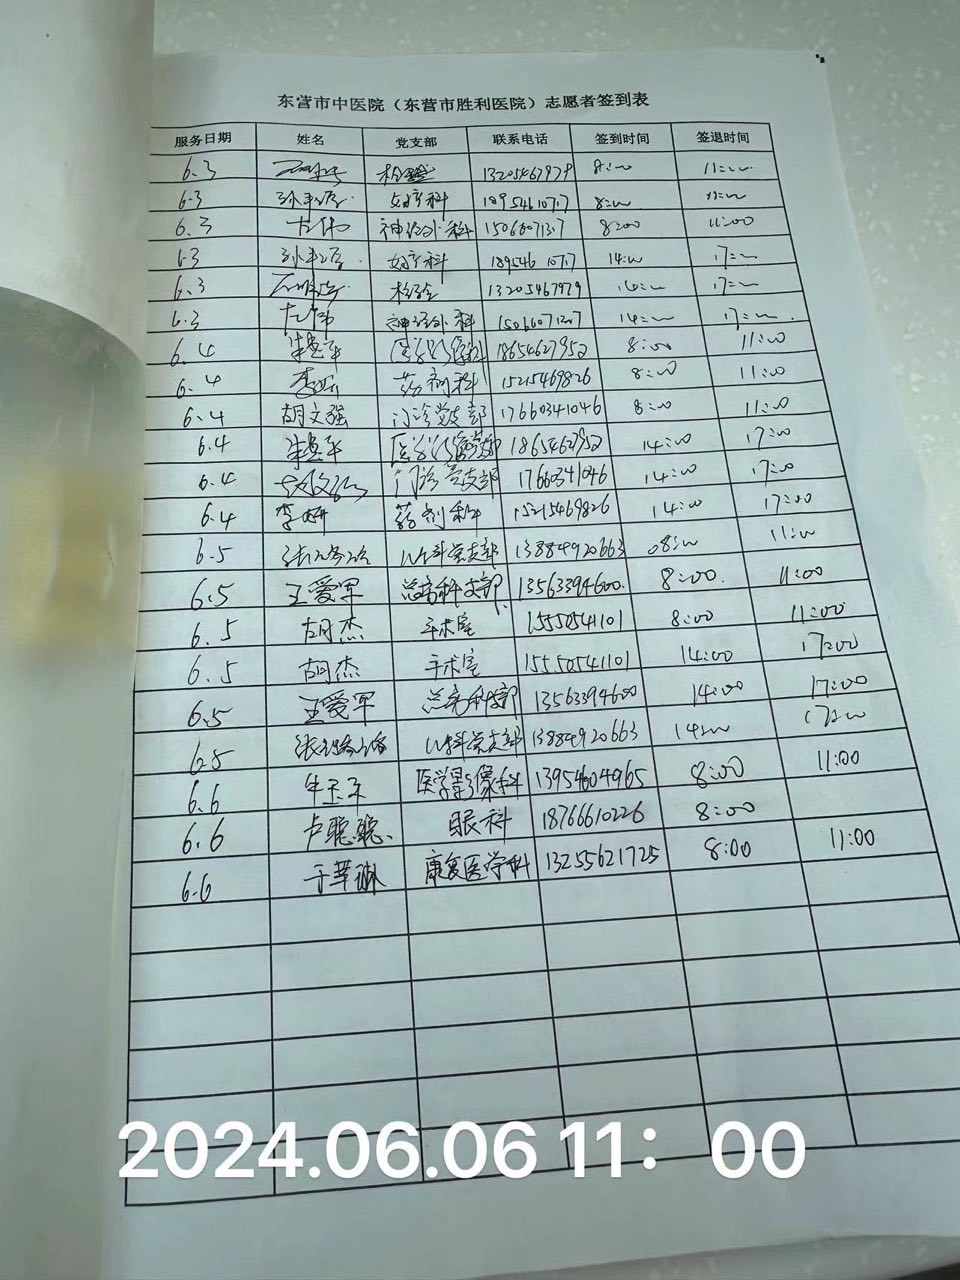 东营市中医院（东营市胜利医院）志愿者签到表
服务日期 姓名 党支部 联系电话 签到时间 签退时间
6.3 检验 13205467979 8:00 11:00
6.3 妇产科 18954610707 8:00 11:00
6.3 左伟 神经外科 15066071307 8:00 11:00
6.3 妇产科 18954610707 14:00 17:00
6.3 检验 13205467979 14:00 17:00
6.3 左伟 神经外科 15066071307 14:00 17:00
6.4 医学影像科 18654627952 8:00 11:00
6.4 李妍 药剂科 15215469826 8:00 11:00
6.4 胡文强 门诊党支部 17660341046 8:00 11:00
6.4 医学影像党支部 18654627952 14:00 17:00
6.4 门诊党支部 17660341046 14:00 17:00
6.4 李妍 药剂科 15215469826 14:00 17:00
6.5 儿科党支部 13884920663 08:00 11:00
6.5 王爱军 支部 13563394600. 8:00. 11:00
6.5 胡杰 手术室 15550541101 8:00 11:00
6.5 胡杰 手术室 15550541101 14:00 17:00
6.5 王爱军 13563394600 14:00 17:00
6.5 儿科党支部 13884920663 14:00 17:00
6.6 牛玉玉 医学影像科 13954604965 8:00 11:00
6.6 卢聪聪 眼科 18766610226 8:00
6.6 于苹琳 康复医学科 13255621725 8:00 11:00
2024.06.06 11：00